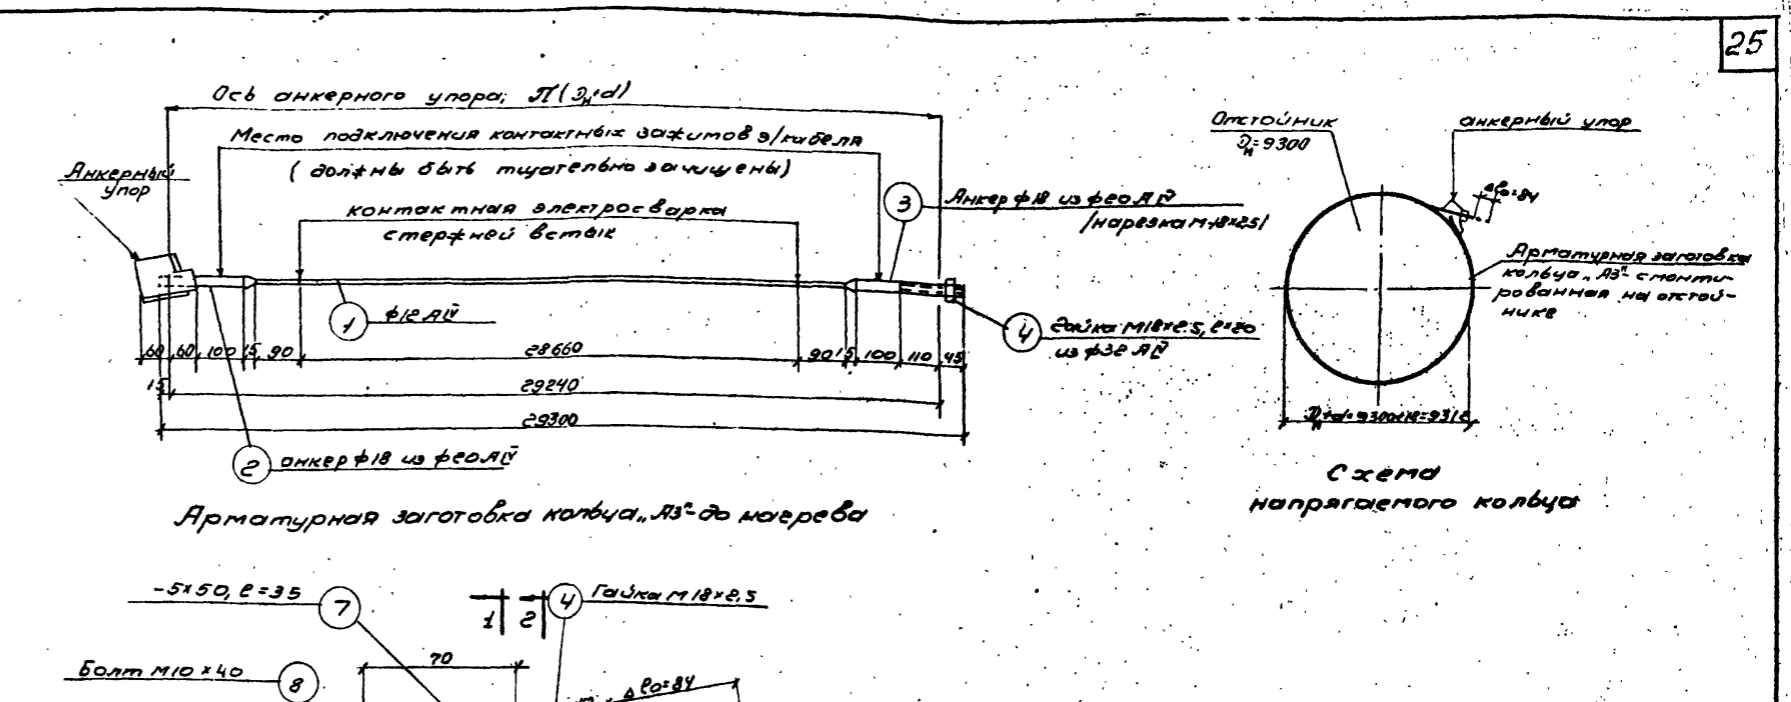 25
Ось анкерного упора; П(Dн+d)
Место подключения контактных зажимов э/кабеля
(должны быть тщательно зачищены)
Анкерный
упор
контактная электросварка
стержней встык
3
Анкер ф18 из ф20 АIV
/нарезка М18х2,5/
1
ф12 АIV
4
Гайка М18х2.5, ℓ=20
из ф32 АIV
60 60 100 15 90 28660 90 15 100 110 45
15 29240
29300
2
анкер ф18 из ф20 АIV
Арматурная заготовка кольца „АЗ"-до нагрева
Отстойник
Dн=9300
анкерный упор
Δℓо=84
Арматурная заготовка
кольца „АЗ" смонти-
рованная на отстой-
нике
Dн+d=9300+12=9312
Схема
напрягаемого кольца
-5х50, ℓ=35
7
1 2
4
Гайка М18х2,5
70
Болт М10х40
8
Δℓо=84